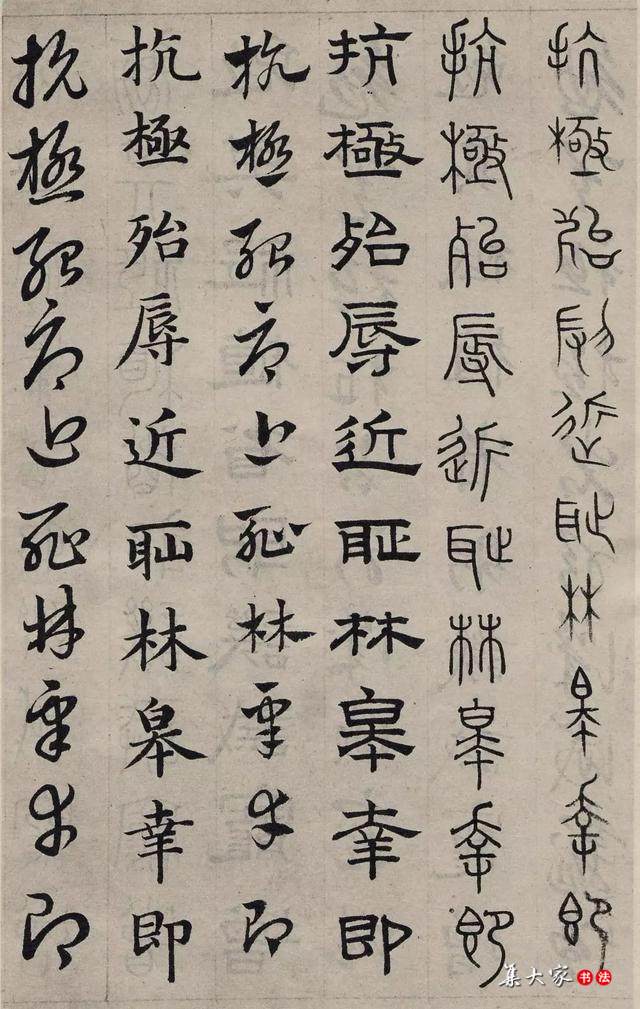 抗極殆辱近恥林皋幸即
抗極殆辱近恥林皋幸即
抗極殆辱近恥林皋幸即
抗極殆辱近恥林皋幸即
抗極殆辱近恥林皋幸即
抗極殆辱近恥林皋幸即
集大家书法